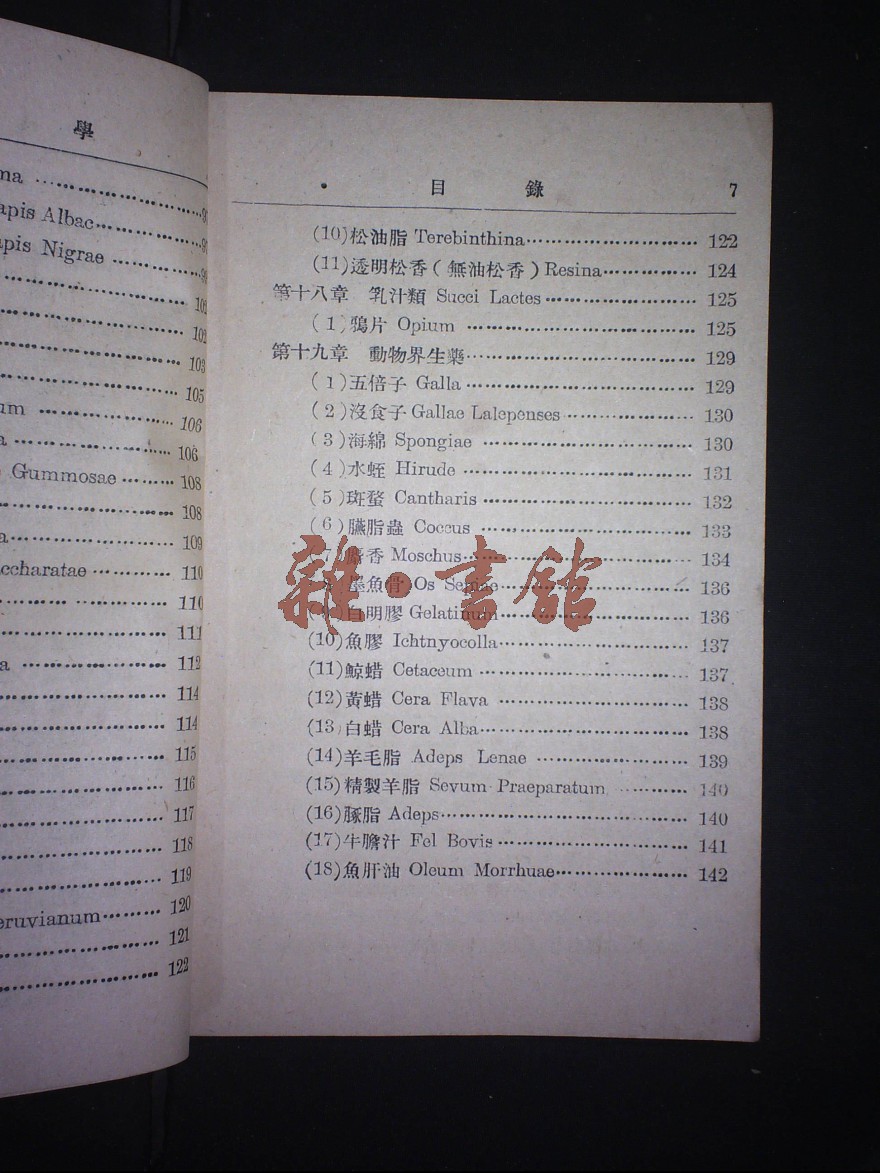 學
na ………………
apis Albac………………
apis Nigrae ………………
……………… 102
……………… 102
……………… 103
……………… 105
um ……………… 106
a ……………… 106
e Gummosae ……… 108
……………… 108
a……………… 109
ccharatae ………… 110
……………… 110
……………… 111
a ……………… 112
……………… 114
……………… 114
……………… 115
……………… 116
……………… 117
……………… 118
……………… 119
eruvianum……… 120
……………… 121
……………… 122
目錄 7
(10)松油脂 Terebinthina……………………… 122
(11)透明松香(無油松香)Resina…………… 124
第十八章 乳汁類 Succi Lactes………………… 125
(1)鴉片 Opium ……………………………… 125
第十九章 動物界生藥……………………………… 129
(1)五倍子 Galla……………………………… 129
(2)沒食子 Gallae Lalepenses ……………… 130
(3)海綿 Spongiae …………………………… 130
(4)水蛭 Hirude……………………………… 131
(5)斑蝥 Cantharis…………………………… 132
(6)臙脂蟲 Coccus …………………………… 133
(7)麝香 Moschus…………………………… 134
墨魚骨 Os Sepiae………………………… 136
白明膠 Gelatinum………………………… 136
(10)魚膠 Ichtnyocolla………………………… 137
(11)鯨蜡 Cetaceum …………………………… 137
(12)黃蜡 Cera Flava ………………………… 138
(13)白蜡 Cera Alba…………………………… 138
(14)羊毛脂 Adeps Lenae …………………… 139
(15)精製羊脂 Sevum Praeparatum ………… 140
(16)豚脂 Adeps………………………………… 140
(17)牛膽汁 Fel Bovis………………………… 141
(18)魚肝油 Oleum Morrhuae………………… 142
雜·書館